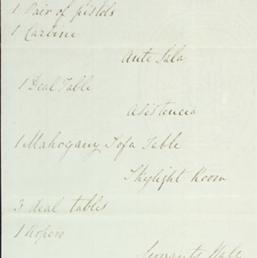 1 Pair of pistols
1 Carbine
Ante Sala
1 Deal Table
Asistencia
1 Mahogany Sofa Table
Skylight Room
3 deal tables
1 ropero
Servants Hall